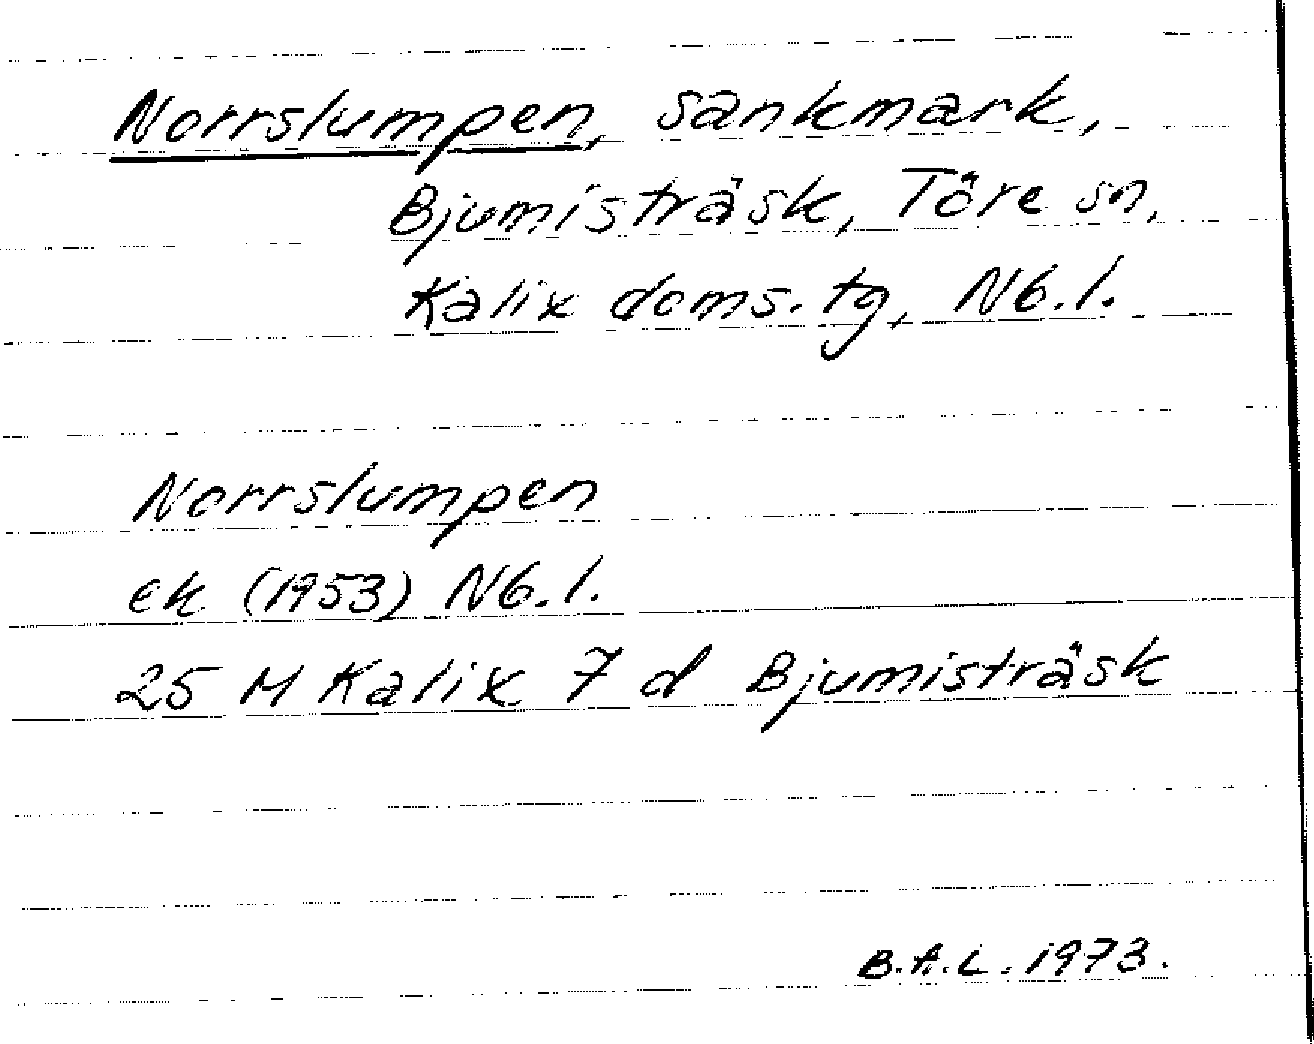 Norrslumpen, sankmark,
Bjumisträsk, Töre sn,
Kalix doms. tg, Nb. l.
Norrslumpen
ek (1953) Nb. l.
25 M Kalix 7 d Bjumisträsk
B.A.L. 1973.